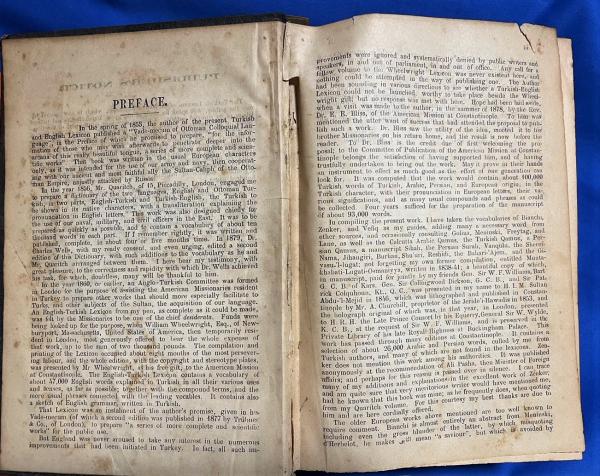 PREFACE.
In the spring of 1855, the author of the present Turkish
and English Lexicon prepared a "Vade-mecum of Ottoman Colloquial Lan-
guage", in the Preface of which he promised to prepare, "For the infor-
mation of those who may wish afterwards to penetrate deeper into the
arcanum of this really beautiful tongue, a series of more complete and scien-
tific works". That book was written in the usual European characters
only, as it was intended for the use of our army and navy, then cooperat-
ing with our ancient and most faithful ally the Sultan-Caliph of the Otto-
man Empire, unjustly attacked by Russia.
In the year 1856, Mr. Quaritch, of 15, Piccadilly, London, engaged me
to prepare a dictionary of the two languages, English and Ottoman Tur-
kish, in two parts, English-Turkish and Turkish-English, the Turkish to
be shown in its native characters, with a transliteration explaining the
pronunciation in English letters. This work was also designed chiefly for
the use of our naval, military, and civil officers in the East. It was to be
prepared as quickly as possible, and to contain a vocabulary of about ten
thousand words in each part. If I remember rightly, it was written and
published, complete, in about four or five months time. In 1879, Dr.
Charles Wells, with my ready consent, and even urging, edited a second
edition of this Dictionary, with such additions to the vocabulary as he and
Mr. Quaritch arranged between them. I here bear my testimony, with
great pleasure, to the correctness and rapidity with which Dr. Wells achieved
his task, for which, doubtless, many will be thankful to him.
In the year 1860, or earlier, an Anglo-Turkish Committee was formed
in London for the purpose of assisting the American Missionaries resident
in Turkey to prepare other works that should more especially facilitate to
Turks, and other subjects of the Sultan, the acquisition of our language.
An English-Turkish Lexicon from my pen, as complete as it could be made,
was felt by the Missionaries to be one of the chief desiderata. Funds were
being looked up for the purpose, when William Wheelwright, Esq., of New-
buryport, Massachusetts, United States of America, then temporarily resi-
dent in London, most generously offered to bear the whole expense of
that work, up to the sum of two thousand pounds. The compilation and
printing of the Lexicon occupied about eight months of the most persever-
ing labour, and the whole edition, with the copyright and stereotype plates,
was presented by Mr. Wheelwright, as his free gift, to the American Mission
at Constantinople. The English-Turkish Lexicon contains a vocabulary of
about 57,000 English words explained in Turkish, in all their various uses
and phrases, as far as possible; together with the compound terms, and the
more usual phrases connected with the leading vocables. It contains also
a sketch of English grammar, written in Turkish.
That Lexicon was an instalment of the author's promise, given in his
Vade-mecum (of which a second edition was published in 1877 by Trübner
& Co., of London), to prepare "a series of more complete and scientific
works" for the public use.
But England was never aroused to take any interest in the numerous
improvements that had been initiated in Turkey. In fact, all such im-
provements were ignored and systematically denied by public writers and
speakers, in and out of parliament, in and out of office. Any call for a
fellow volume to the Wheelwright Lexicon was never existent here, and
nothing could be attempted in the way of publishing one. The Author
had been sounding in various directions to see whether a Turkish-English
Lexicon could not be launched, worthy to take place beside the Wheel-
wright gift; but no response was met with here. Hope had been laid aside,
when a visit was made to the author, in the summer of 1878, by the Rev.
Dr. E. E. Bliss, of the American Mission at Constantinople. To him was
mentioned the utter want of success that had attended the proposal to pub-
lish such a work. Dr. Bliss saw the utility of the idea, mooted it to his
brother Missionaries on his return home, and the result is now before the
reader. To Dr. Bliss is the credit due of first welcoming the pro-
posal; to the Committee of Publication of the American Mission at Constan-
tinople belongs the satisfaction of having supported him, and of having
trustfully undertaken to bring out the work. May it prove in their hands
an instrument to effect as much good as the effort of our generation can
look for. It was computed that the work would contain about 100,000
Turkish words of Turkic, Arabic, Persian, and European origin, in the
Turkish character, with their pronunciation in European letters, their va-
rious significations, and as many usual compounds and phrases as could
be collected. Four years sufficed for the preparation of the manuscript
of about 93,000 words.
In compiling the present work, I have taken the vocabularies of Bianchi,
Zenker, and Vefiq as my guides, adding many a necessary word from
other sources, and occasionally consulting Golius, Meninski, Freytag, and
Lane, as well as the Calcutta Arabic Qamus, the Turkish Qamus, a Per-
sian Qamus, a manuscript Sihah, the Persian Surah, Vanquli, the Shemsi-
Nama, Jihangiri, Burhan, Shu'uri, Reshidi, the Bahar-i'Ajem, and the
vasu-l-lugat; not forgetting my own former compilation, entitled Munta-
khabati-Lugati-Osmaniyya, written in 1838-41; a beautiful copy of which,
in manuscript, paid for jointly by my friends Gen. Sir W. F. Williams, Bart.
G. C. B. of Kars, Gen. Sir Collingwood Dickson, G. C. B., and Sir Pat-
rick Colquhoun, K.C., Q.C., was presented in my name to H. I. M. Sultan
Abdu-'l-Mejid in 1846, which was lithographed and published in Constan-
tinople by Mr. A. Churchill, proprietor of the Jeridei-Hawadis in 1853, and
the holograph original of which was, in that year, in London, presented
to H. R. H. the Late Prince Consort by his Equerry, General Sir W. Wylde,
K. C. B., at the request of Sir W. F. Williams, and is preserved in the
Private Library of his late Royal Highness at Buckingham Palace. This
work has passed through many editions at Constantinople. It contains a
selection of about 35,000 Arabic and Persian words, culled by me from
Turkish authors, and many of which are not found in the lexicons. Zen-
ker does not mention this work among his authorities. It was published
anonymously at the recommendation of Ali Pasha, then Minister of Foreign
affairs; and perhaps for this reason is passed over in silence. I can trace
many of my additions and explanations in the excellent work of Zenker,
and am quite sure that very meritorious writer would have mentioned me,
had he known that this book was mine; as he frequently does, when quoting
from my Quaritch volume. For this courtesy my best thanks are due to
him and are here cordially offered.
The older European works above mentioned are too well known to
require comment. Bianchi is almost entirely an abstract from Meninski,
including even the gross blunder of the latter, by which misquoting
d'Herbelot, he makes will mean "a saviour", but which is avoided by